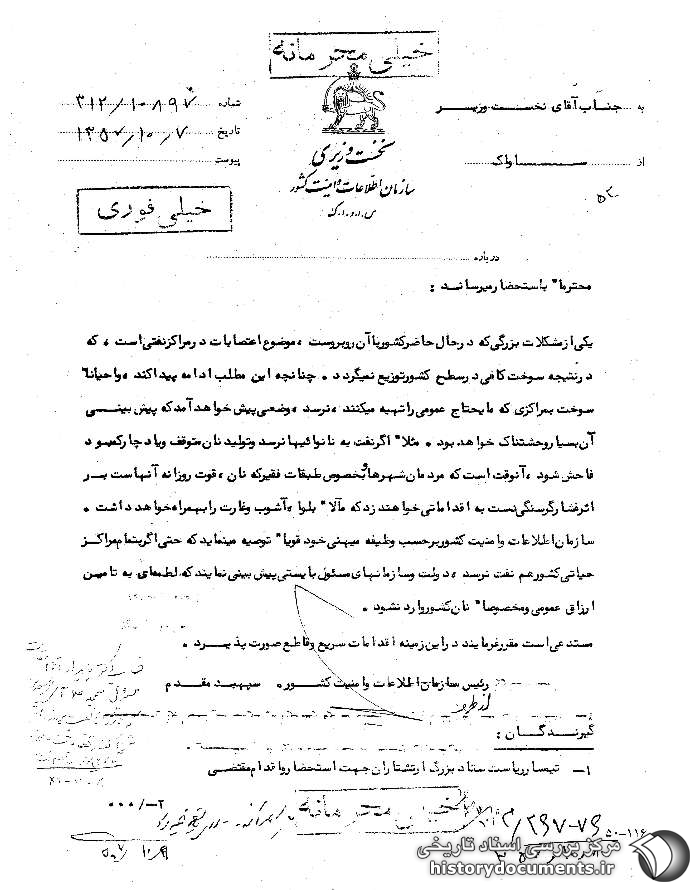 خیلی محرمانه
به جناب آقای نخست وزیر
از ساواک
شماره ۳۱۲/۱۰۸۹۷
تاریخ ۱۳۵۷/۱۰/۷
پیوست
نخست وزیری
سازمان اطلاعات و امنیت کشور
س.ا.و.ا.ک
خیلی فوری
درباره
محترما" باستحضار میرساند :
یکی از مشکلات بزرگی که در حال حاضر کشور با آن روبروست ، موضوع اعتصابات در مراکز نفتی است ، که
در نتیجه سوخت کافی در سطح کشور توزیع نمیگردد . چنانچه این مطلب ادامه پیدا کند ، و احیانا"
سوخت بمراکزی که مایحتاج عمومی را تهیه میکنند ، نرسد ، وضعی پیش خواهد آمد که پیش بینی
آن بسیار وحشتناک خواهد بود . مثلا" اگر نفت به نانوائیها نرسد و تولید نان متوقف و یا دچار کمبود
فاحش شود ، آنوقت است که مردمان شهرها و بخصوص طبقات فقیر که نان ، قوت روزانه آنهاست بر
اثر فشار گرسنگی دست به اقداماتی خواهند زد که مآلا" بلوا ، آشوب و غارت را بهمراه خواهد داشت .
سازمان اطلاعات و امنیت کشور بر حسب وظیفه میهنی خود قویا" توصیه مینماید که حتی اگر بتمام مراکز
حیاتی کشور هم نفت نرسد ، دولت و سازمانهای مسئول بایستی پیش بینی نمایند که لطمه‌ای به تامین
ارزاق عمومی و مخصوصا" نان کشور وارد نشود .
مستدعی است مقرر فرمایند در این زمینه اقدامات سریع و قاطع صورت پذیرد .
رئیس سازمان اطلاعات و امنیت کشور . سپهبد مقدم
از طرف
گیرندگان :
۱- تیمسار ریاست ستاد بزرگ ارتشتاران جهت استحضار و اقدام مقتضی
خیلی محرمانه
۵۰-۱۱۶
مرکز بررسی اسناد تاریخی
historydocuments.ir